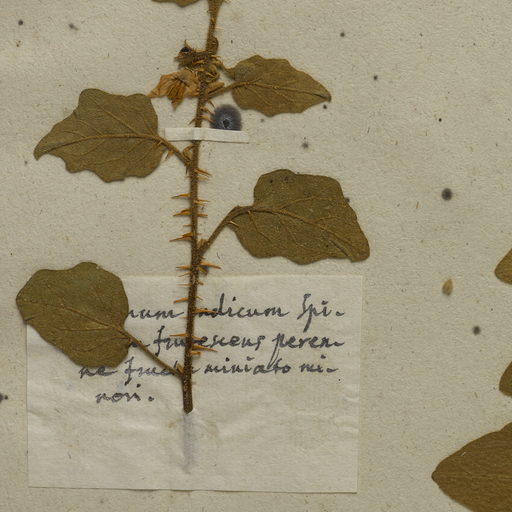 num indicum Spi-
frutescens peren-
ne fructu miniato mi-
nori.